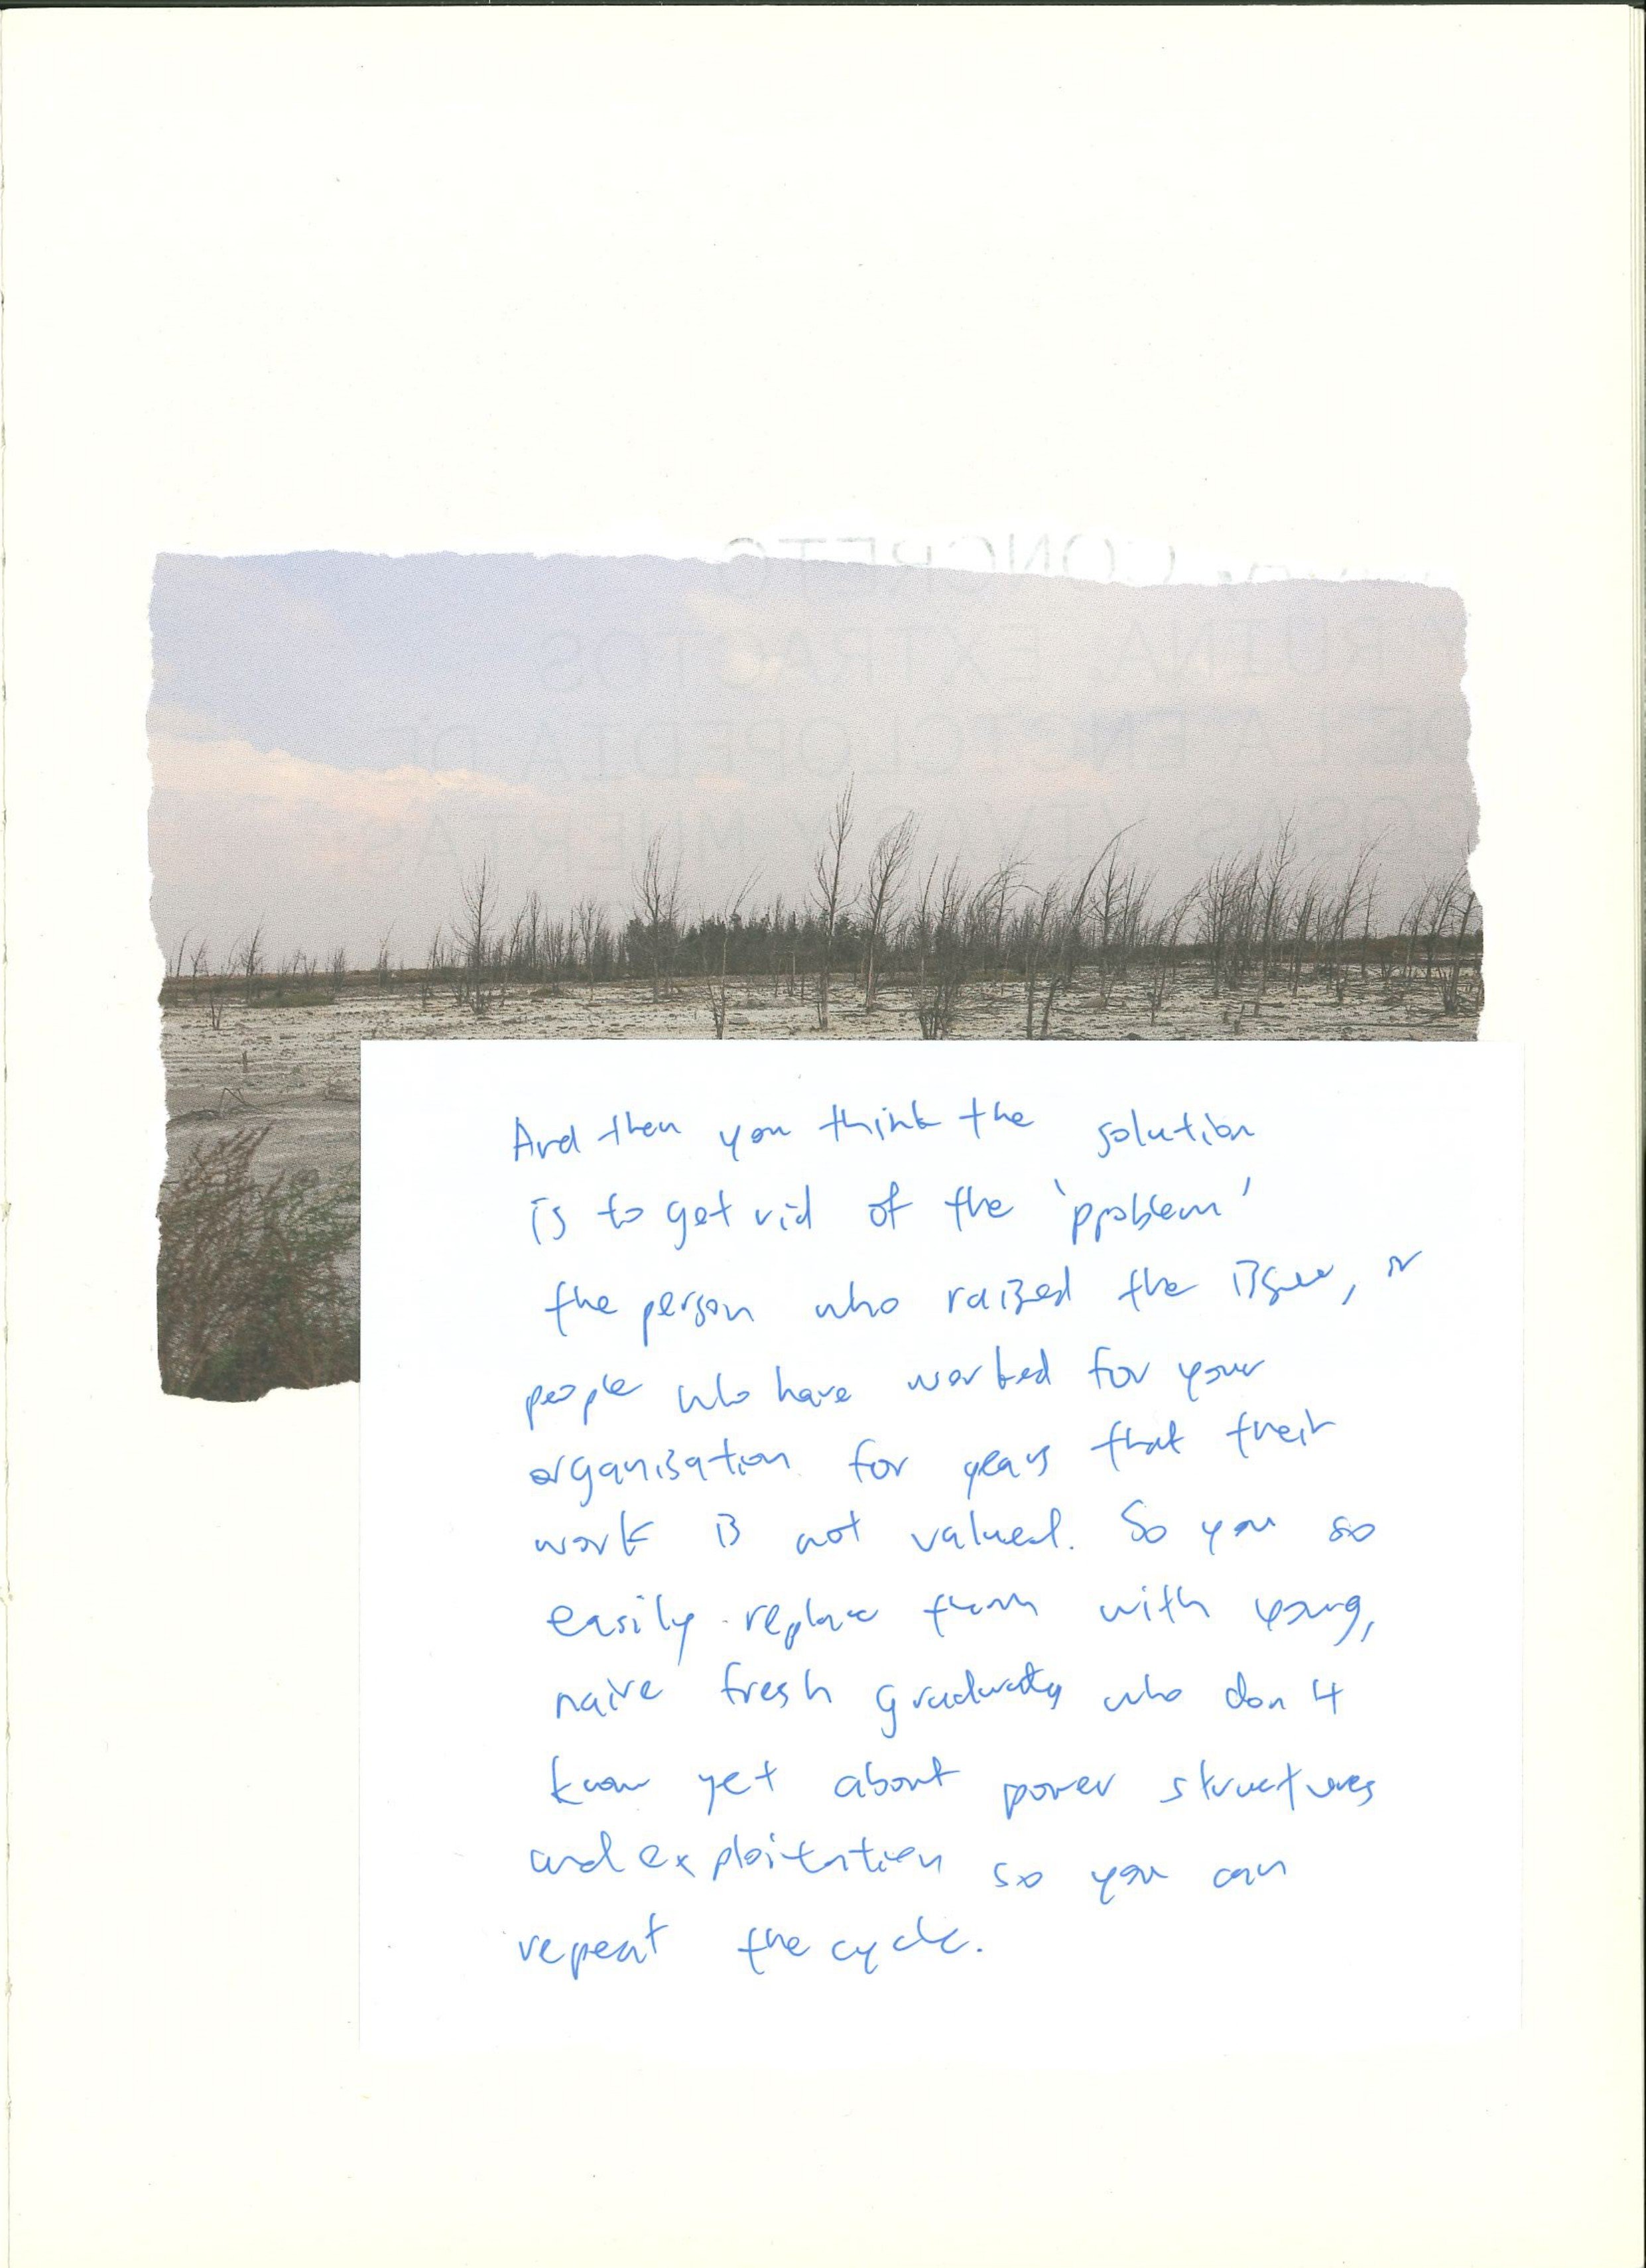 CONCRETO
Y RUINA. EXTRACTOS
DE LA ENCICLOPEDIA DE
COSAS VIVAS Y MUERTAS
And then you think the solution
is to get rid of the 'problem'
the person who raised the issue, or
people who have worked for your
organisation for years that their
work is not valued. So you so
easily replace them with young,
naive fresh graduates who don't
know yet about power structures
and exploitation so you can
repeat the cycle.